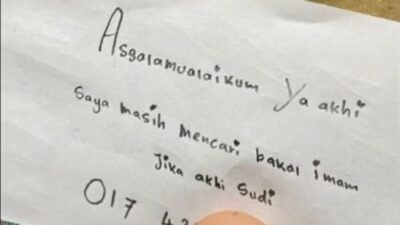 Assalamualaikum Ya akhi
Saya masih mencari bakal imam
Jika akhi sudi
017 42